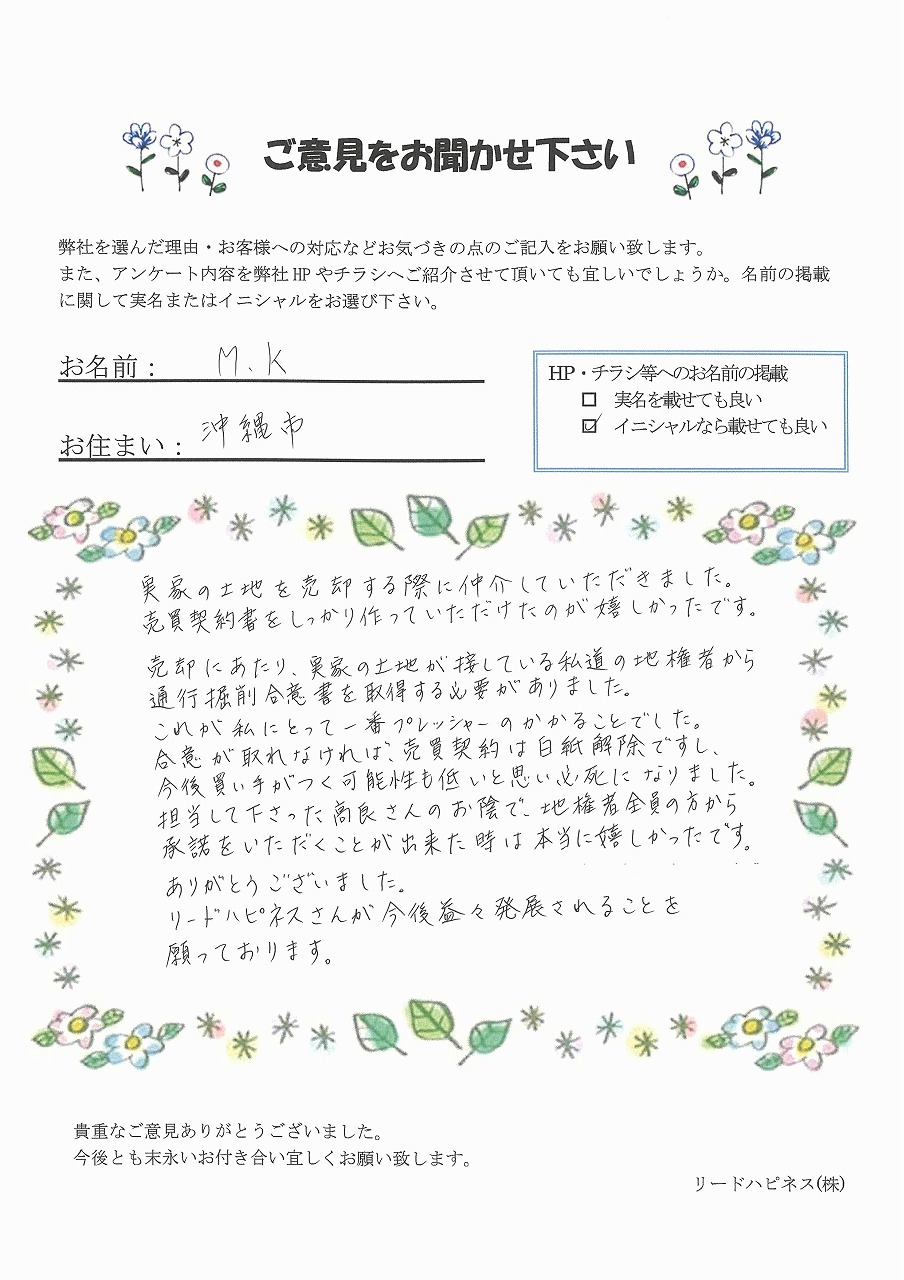 ご意見をお聞かせ下さい
弊社を選んだ理由・お客様への対応などお気づきの点のご記入をお願い致します。
また、アンケート内容を弊社HPやチラシへご紹介させて頂いても宜しいでしょうか。名前の掲載
に関して実名またはイニシャルをお選び下さい。
お名前： M.K
お住まい： 沖縄市
HP・チラシ等へのお名前の掲載
□ 実名を載せても良い
☑ イニシャルなら載せても良い
実家の土地を売却する際に仲介していただきました。
売買契約書をしっかり作っていただけたのが嬉しかったです。
売却にあたり、実家の土地が接している私道の地権者から
通行掘削合意書を取得する必要がありました。
これが私にとって一番プレッシャーのかかることでした。
合意が取れなければ、売買契約は白紙解除ですし、
今後買い手がつく可能性も低いと思い必死になりました。
担当して下さった高良さんのお陰で、地権者全員の方から
承諾をいただくことが出来た時は本当に嬉しかったです。
ありがとうございました。
リードハピネスさんが今後益々発展されることを
願っております。
貴重なご意見ありがとうございました。
今後とも末永いお付き合い宜しくお願い致します。
リードハピネス(株)